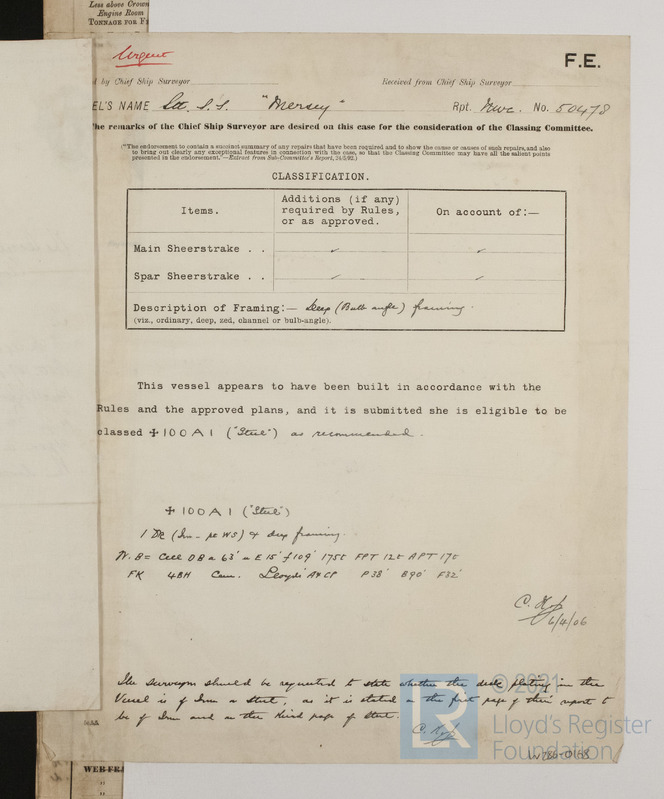 Less above Crown
Engine Room
TONNAGE FOR F
Urgent
F.E.
d by Chief Ship Surveyor
Received from Chief Ship Surveyor
EL'S NAME S.S. "Mersey" Rpt. Nwc. No. 50478
The remarks of the Chief Ship Surveyor are desired on this case for the consideration of the Classing Committee.
("The endorsement to contain a succinct summary of any repairs that have been required and to show the cause or causes of such repairs, and also
to bring out clearly any exceptional features in connection with the case, so that the Classing Committee may have all the salient points
presented in the endorsement."—Extract from Sub-Committee's Report, 24/5/92.)
CLASSIFICATION.
Items.
Additions (if any)
required by Rules,
or as approved.
On account of:—
Main Sheerstrake . . ✓ ✓
Spar Sheerstrake . . ✓ ✓
Description of Framing:— Deep (Bulb angle) framing.
(viz., ordinary, deep, zed, channel or bulb-angle).
This vessel appears to have been built in accordance with the
Rules and the approved plans, and it is submitted she is eligible to be
classed ✠ 100 A 1 ("Steel") as recommended.
✠ 100 A 1 ("Steel")
1 Dk (Irn - pt WS) & deep framing.
W.B = Cell DB a 63' u E 15' f 109' 175t FPT 12t APT 17t
FK 4BH Cem. Lloyds' A&CP P 38' B 90' F 32'
6/4/06
The surveyors should be requested to state whether the deck plating in the
Vessel is of Iron or steel, as it is stated on the first page of their report to
be of Iron and on the third page of steel.
© 2021
LR
Lloyd's Register
Foundation
W786-0168
WEB-FRA